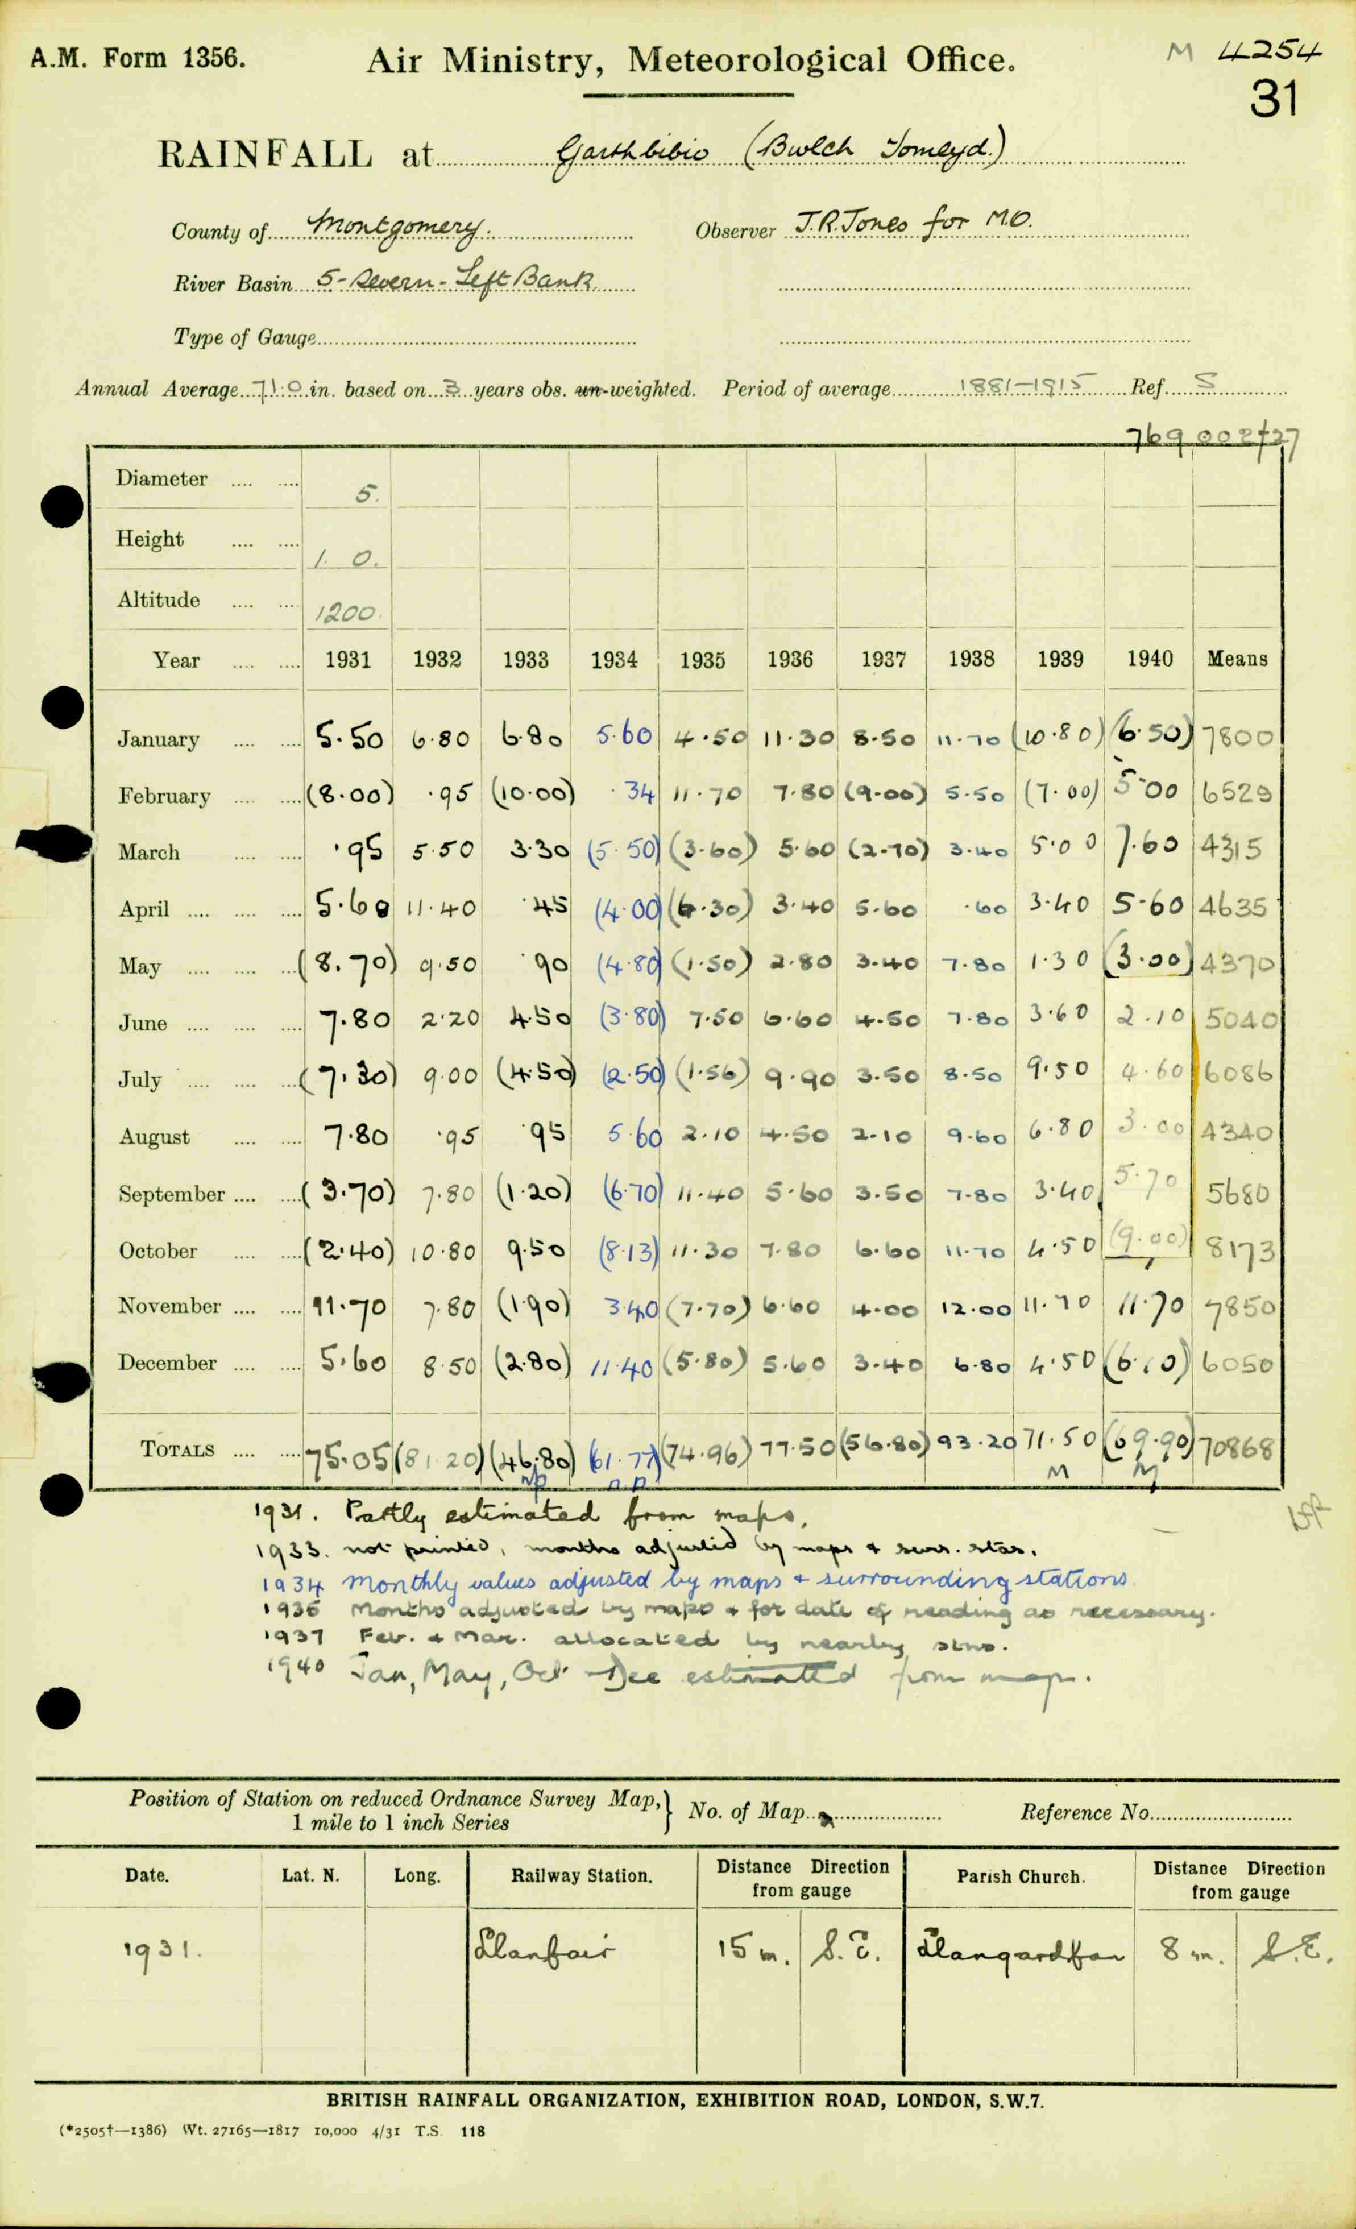 A.M. Form 1356. Air Ministry, Meteorological Office. M 4254
31
RAINFALL at Garthbibio (Bwlch
County of Montgomery. Observer J.R.Jones for M.O.
River Basin 5-Severn-Left Bank
Type of Gauge
Annual Average 71.0 in. based on 3 years obs. un-weighted. Period of average 1881-1915 Ref. S
769
Diameter 5.
Height 1. 0.
Altitude 1200.
Year 1931 1932 1933 1934 1935 1936 1937 1938 1939 1940 Means
January 5.50 6.80 6.80 5.60 4.50 11.30 8.50 11.70 (10.80) (6.50) 7800
February (8.00) .95 (10.00) .34 11.70 7.80 (9.00) 5.50 (7.00) 5.00 6529
March .95 5.50 3.30 (5.50) (3.60) 5.60 (2.70) 3.40 5.00 7.60 4315
April 5.60 11.40 .45 (4.00) (6.30) 3.40 5.60 .60 3.40 5.60 4635
May (8.70) 9.50 .90 (4.80) (1.50) 2.80 3.40 7.80 1.30 (3.00) 4370
June 7.80 2.20 4.50 (3.80) 7.50 6.60 4.50 7.80 3.60 2.10 5040
July (7.30) 9.00 (4.50) (2.50) (1.56) 9.90 3.50 8.50 9.50 4.60 6086
August 7.80 .95 .95 5.60 2.10 4.50 2.10 9.60 6.80 3.00 4340
September (3.70) 7.80 (1.20) (6.70) 11.40 5.60 3.50 7.80 3.40 5.70 5680
October (2.40) 10.80 9.50 (8.13) 11.30 7.80 6.60 11.70 4.50 (9.00) 8173
November 11.70 7.80 (1.90) 3.40 (7.70) 6.60 4.00 12.00 11.70 11.70 7850
December 5.60 8.50 (2.80) 11.40 (5.80) 5.60 3.40 6.80 4.50 (6.10) 6050
TOTALS 75.05 (81.20) (46.80) (61.77) (74.96) 77.50 (56.80) 93.20 71.50 (69.90) 70868
np n.p M M
1931. Partly estimated from maps.
1933. not printed, months adjusted by maps + surr. stas.
1934 Monthly values adjusted by maps + surrounding stations.
1935 Months adjusted by maps + for date of reading as necessary.
1937 Feb. & Mar. allocated by nearby stns.
1940 Jan, May, Oct Dec estimated from map.
Position of Station on reduced Ordnance Survey Map, } No. of Map Reference No.
1 mile to 1 inch Series
Date. Lat. N. Long. Railway Station. Distance Direction from gauge Parish Church. Distance Direction from gauge
1931. Llanfair 15 m. S.E. 8 m. S.E.
BRITISH RAINFALL ORGANIZATION, EXHIBITION ROAD, LONDON, S.W.7.
(*2505†—1386) Wt. 27165—1817 10,000 4/31 T.S. 118